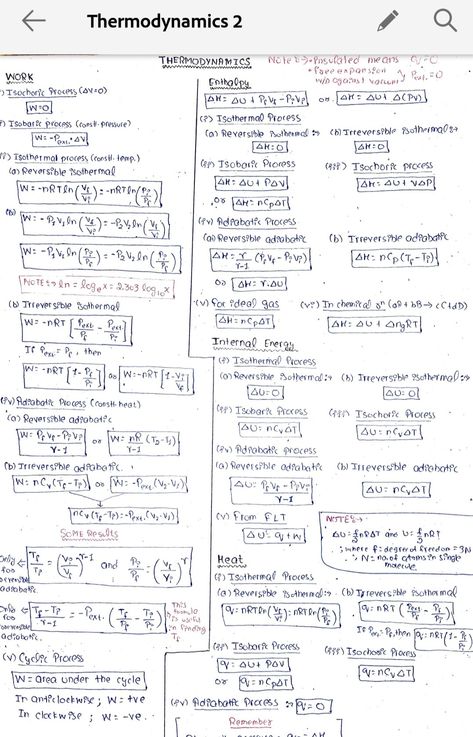 Thermodynamics 2
THERMODYNAMICS
Note :-> Insulated means q=0
• free expansion
against vacuum Pext.=0
WORK
i) Isochoric Process (ΔV=0)
W=0
ii) Isobaric process (const. pressure)
W=-Pext.ΔV
iii) Isothermal process (const. temp.)
(a) Reversible isothermal
W=-nRT ln(Vf/Vi) = -nRT ln(Pi/Pf)
(b)
W=-PiVi ln(Vf/Vi) = -PfVf ln(Vf/Vi)
W=-PiVi ln(Pi/Pf) = -PfVf ln(Pi/Pf)
NOTE:-> ln = logex = 2.303 log10x
(b) Irreversible isothermal
W=-nRT [Pext/Pf - Pext/Pi]
If Pext = Pf, then
W=-nRT [1-Pf/Pi] or W=-nRT [1-Vi/Vf]
(iv) Adiabatic Process (const. heat)
(a) Reversible adiabatic
W= PfVf-PiVi/γ-1 or W= nR/γ-1 (T2-T1)
(b) Irreversible adiabatic.
W= nCv(Tf-Ti) or W=-Pext.(V2-V1)
nCv(Tf-Ti)=-Pext.(V2-V1)
SOME Results
Only for reversible adiabatic.
Tf/Ti = (Vi/Vf)γ-1 and Pi/Pf = (Vf/Vi)γ
Only for irreversible adiabatic.
Tf-Ti/γ-1 = -Pext.(Tf/Pf - Ti/Pi)
This formula is useful in finding Tf
(v) Cyclic Process
W= area under the cycle
In anticlockwise ; W= +ve
In clockwise ; W= -ve.
Enthalpy
ΔH= ΔU + PfVf-PiVi or ΔH= ΔU + Δ(PV)
(i) Isothermal Process
(a) Reversible isothermal :-> (b) Irreversible isothermal:->
ΔH=0 ΔH=0
(ii) Isobaric Process (iii) Isochoric process
ΔH= ΔU + PΔV ΔH= ΔU + VΔP
or ΔH= nCpΔT
(iv) Adiabatic Process
(a) Reversible adiabatic (b) Irreversible adiabatic
ΔH= γ/γ-1 (PfVf-PiVi) ΔH= nCp(Tf-Ti)
or ΔH= γ.ΔU
(v) for ideal gas (vi) In chemical
ΔH= nCpΔT ΔH= ΔU + ΔngRT
Internal Energy
(i) Isothermal Process
(a) Reversible isothermal:-> (b) Irreversible isothermal:->
ΔU=0 ΔU=0
(ii) Isobaric Process (iii) Isochoric Process
ΔU= nCvΔT ΔU= nCvΔT
(iv) Adiabatic process
(a) Reversible adiabatic (b) Irreversible adiabatic
ΔU= PfVf-PiVi/γ-1 ΔU= nCvΔT
(v) From FLT
ΔU= q+W
NOTE:->
ΔU= f/2 nRΔT and U= f/2 nRT
; where f: degree of freedom = 3N
; N= no. of atoms in single molecule.
Heat
(i) Isothermal Process
(a) Reversible isothermal (b) Irreversible isothermal
q= nRT ln(Vf/Vi) = nRT ln(Pi/Pf) q= nRT (Pext/Pf - Pext/Pi)
If Pext=Pf, then q= nRT(1-Pf/Pi)
(ii) Isobaric Process (iii) Isochoric Process
q= ΔU + PΔV q= nCvΔT
or q= nCpΔT
(iv) Adiabatic Process :-> q=0
Remember